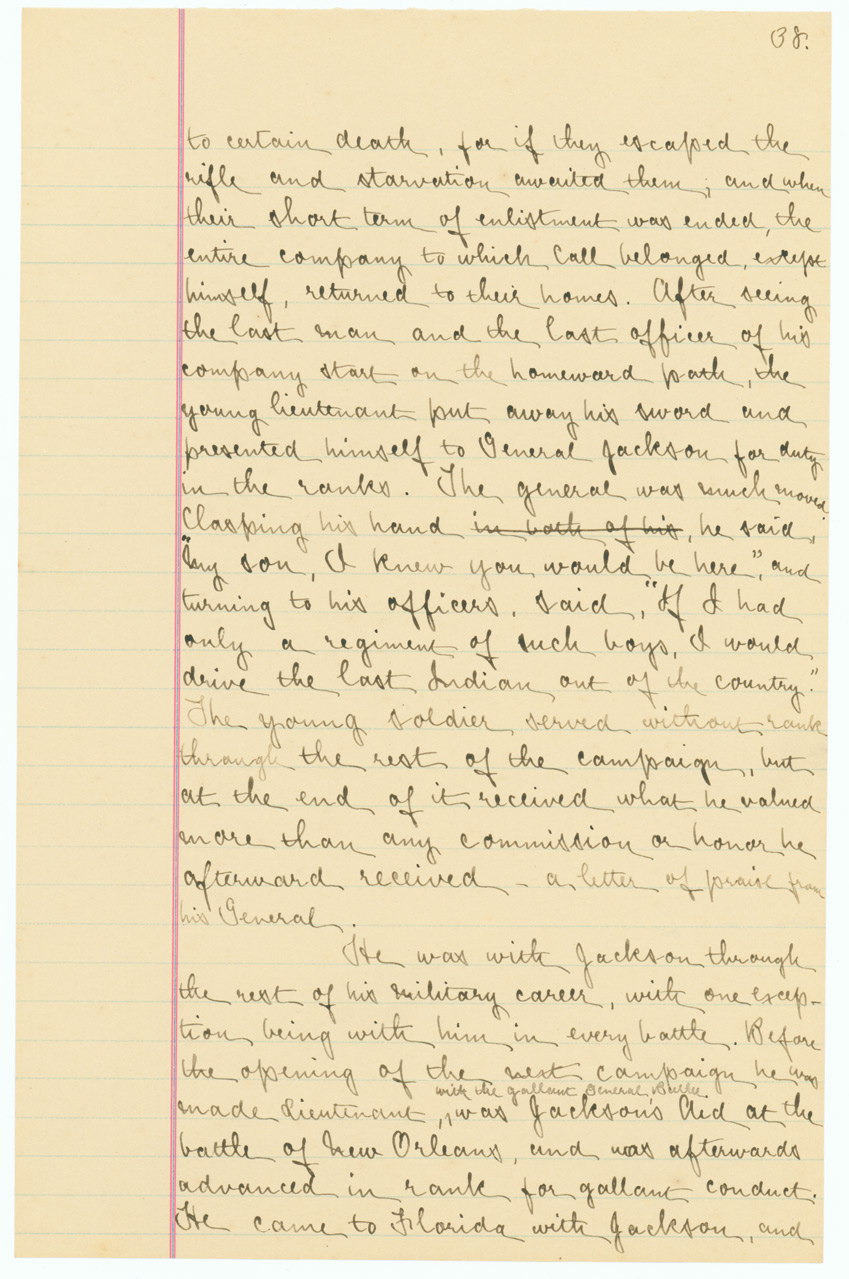 38.
to certain death, for if they escaped the
rifle and starvation awaited them; and when
their short term of enlistment was ended, the
entire company to which Call belonged, except
himself, returned to their homes. After seeing
the last man and the last officer of his
company start on the homeward path, the
young lieutenant put away his sword and
presented himself to General Jackson for duty
in the ranks. The general was much moved.
Clasping his hand in both of his, he said,
"my son, I knew you would be here", and
turning to his officers, said, "If I had
only a regiment of such boys, I would
drive the last Indian out of the country."
The young soldier served without rank
through the rest of the campaign, but
at the end of it received what he valued
more than any commission or honor he
afterward received - a letter of praise from
his General.
He was with Jackson through
the rest of his military career, with one excep-
tion being with him in every battle. Before
the opening of the next campaign he was
with the gallant General Butler
made Lieutenant, was Jackson's Aid at the
battle of New Orleans, and was afterwards
advanced in rank for gallant conduct.
He came to Florida with Jackson, and